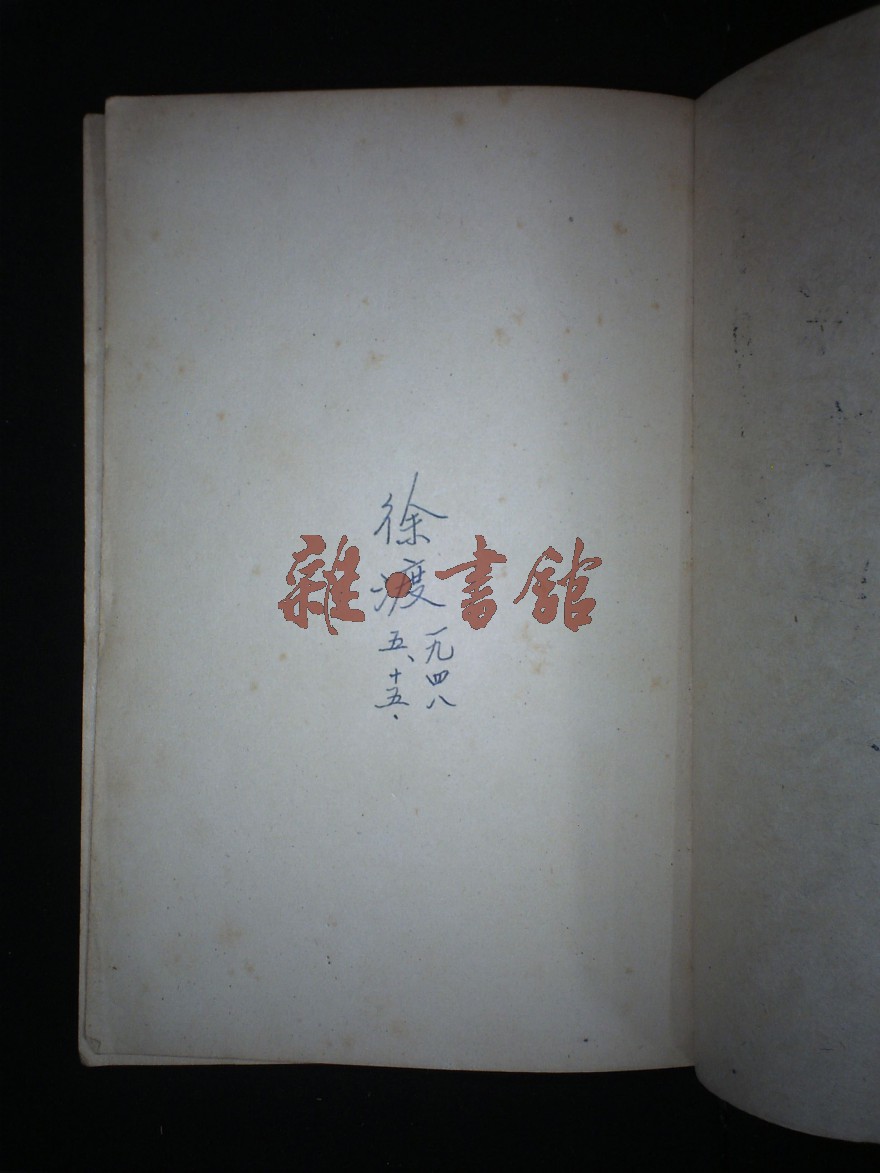 徐渡
一九四八
五、十五.
雜·書館